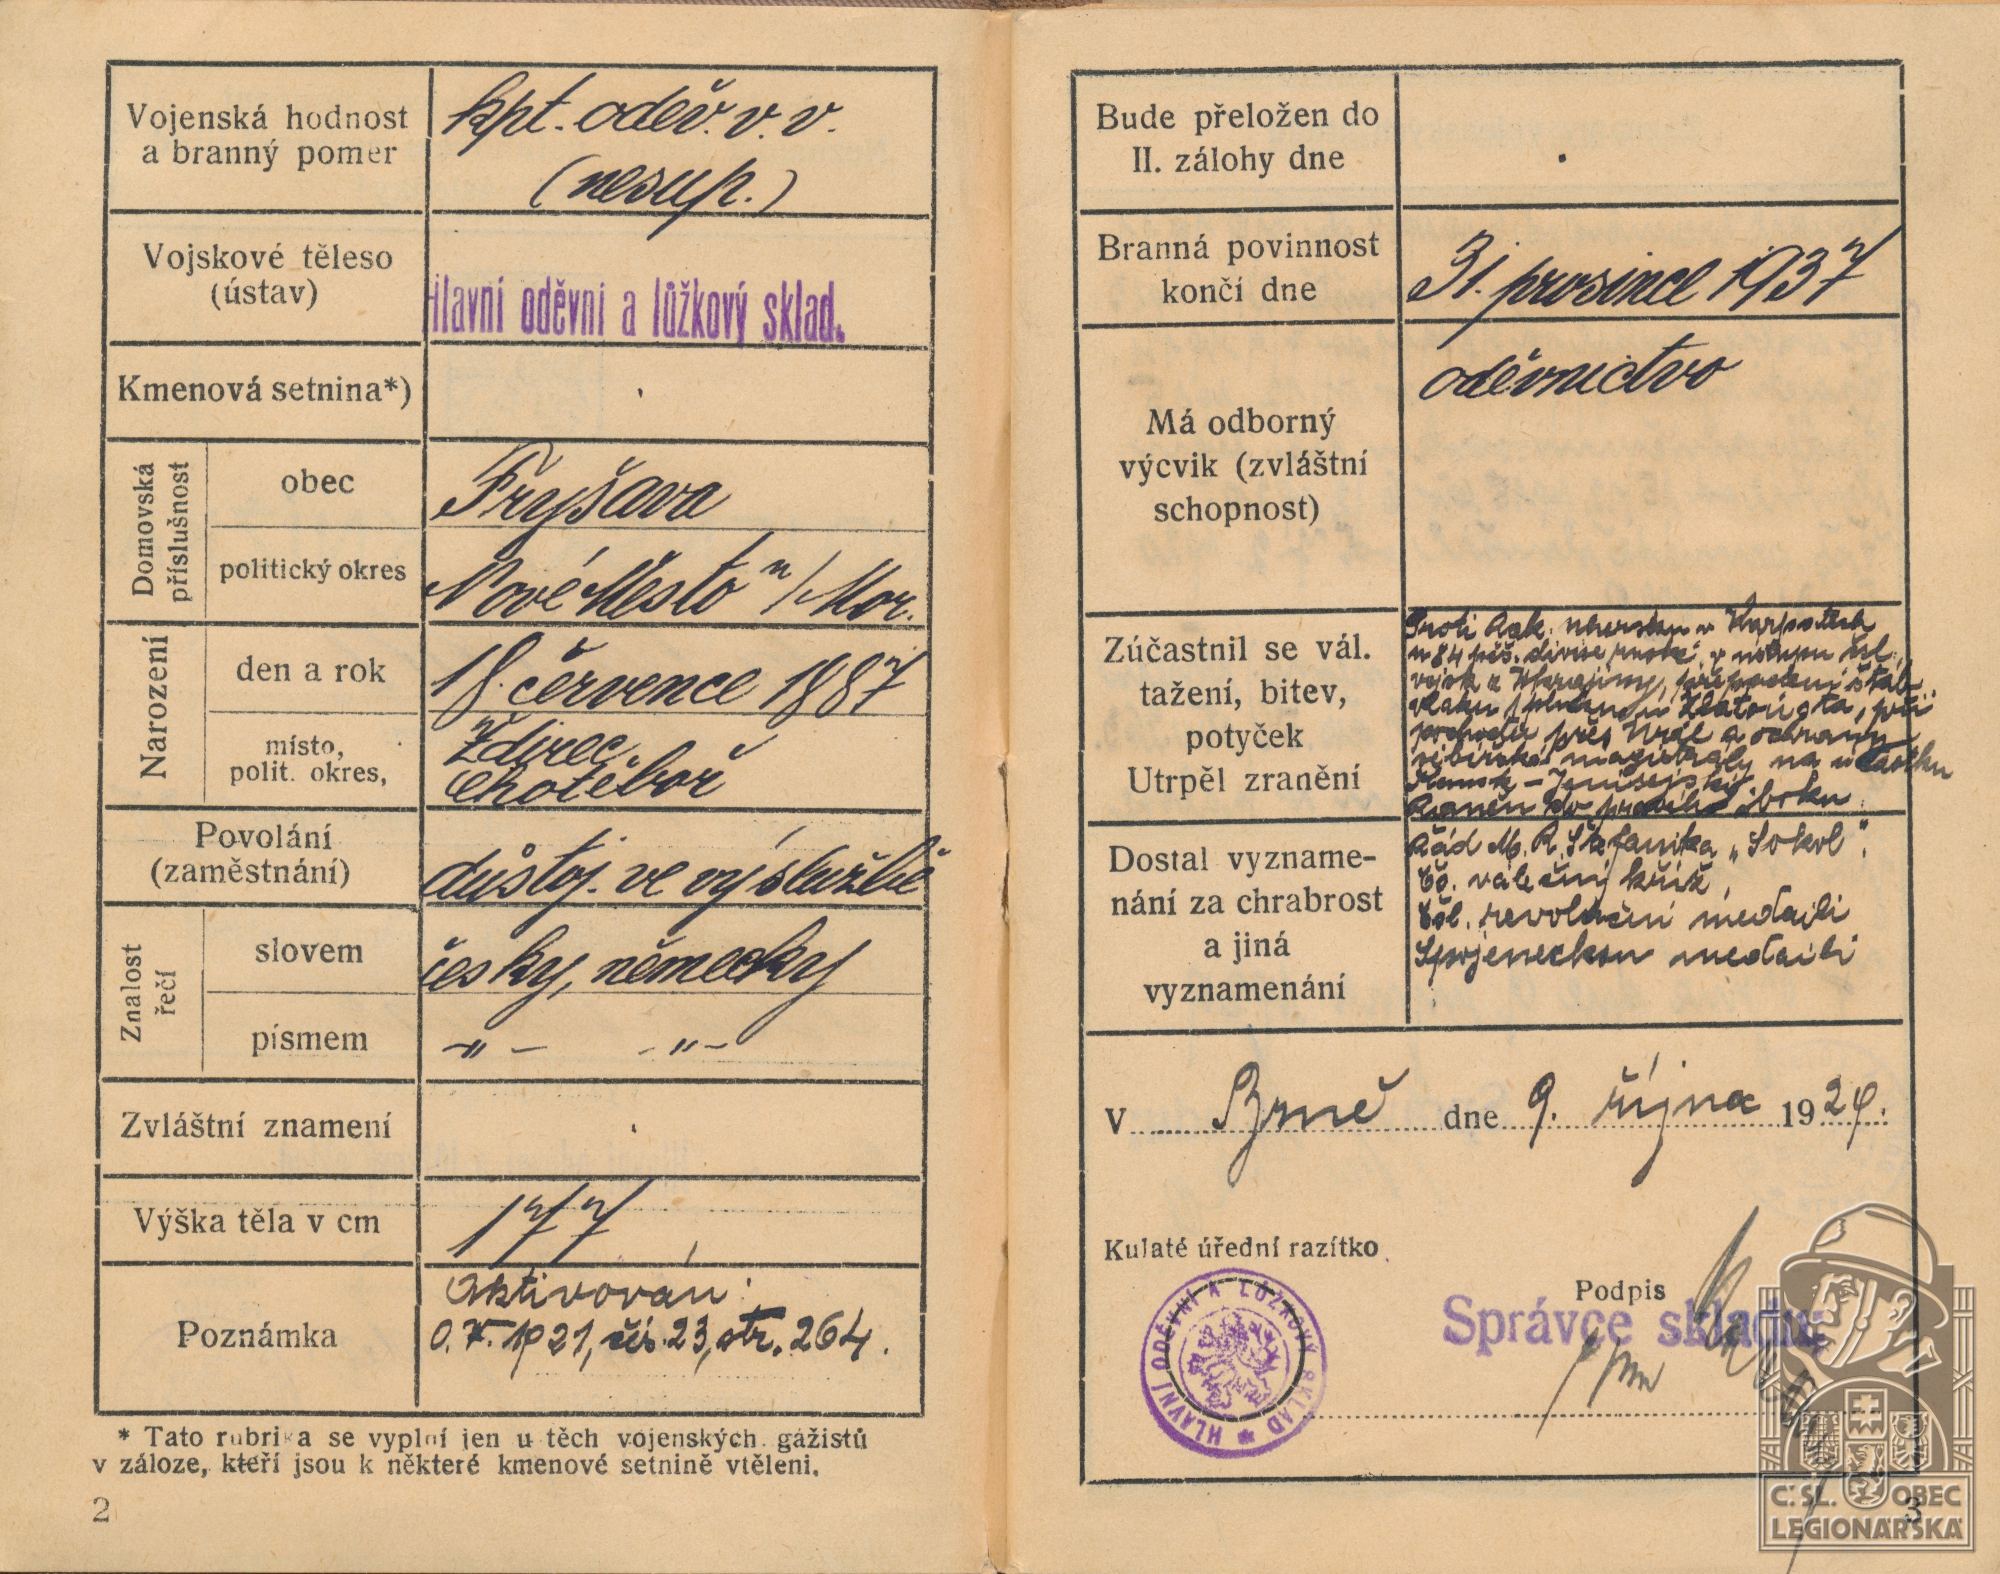 Vojenská hodnost
a branný pomer
kpt. oděv. v. v.
(nesup.)
Vojskové těleso
(ústav)
Hlavní oděvní a lůžkový sklad.
Kmenová setnina*)
Domovská
příslušnost
obec
Fryšava
politický okres
Nové Město n/Mor.
Narození
den a rok
18. července 1887
místo,
polit. okres,
Ždírec,
Chotěboř
Povolání
(zaměstnání)
důstoj. ve výslužbě
Znalost
řečí
slovem
česky, německy
písmem
-„- -„-
Zvláštní znamení
Výška těla v cm
177
Poznámka
Aktivován:
O.V. 1921, čís. 23, str. 264.
* Tato rubrika se vyplní jen u těch vojenských gážistů
v záloze, kteří jsou k některé kmenové setnině vtěleni.
2
Bude přeložen do
II. zálohy dne
Branná povinnost
končí dne
31. prosince 1937
Má odborný
výcvik (zvláštní
schopnost)
oděvnictvo
Zúčastnil se vál.
tažení, bitev,
potyček
Utrpěl zranění
Proti Rak. Uhersku v Karpatech
u 84 pěš. divise ruské, v ústupu čsl.
vojsk z Ukrajiny, přepadení štáb.
vlaku pluku u Zlatoústa, při
pochodu přes Ural a ochranu
sibiřské magistraly na úseku
Kansk - Jenisejský
Raněn do pravého boku.
Dostal vyzname-
nání za chrabrost
a jiná
vyznamenání
Řád M. R. Štefanika „Sokol".
Čs. válečný kříž,
Čsl. revoluční medaili
Spojeneckou medaili
V Brně dne 9. října 1924.
Kulaté úřední razítko
HLAVNÍ ODĚVNÍ A LŮŽKOVÝ SKLAD
Podpis
Správce skladu:
3
Č. SL. OBEC
LEGIONÁŘSKÁ